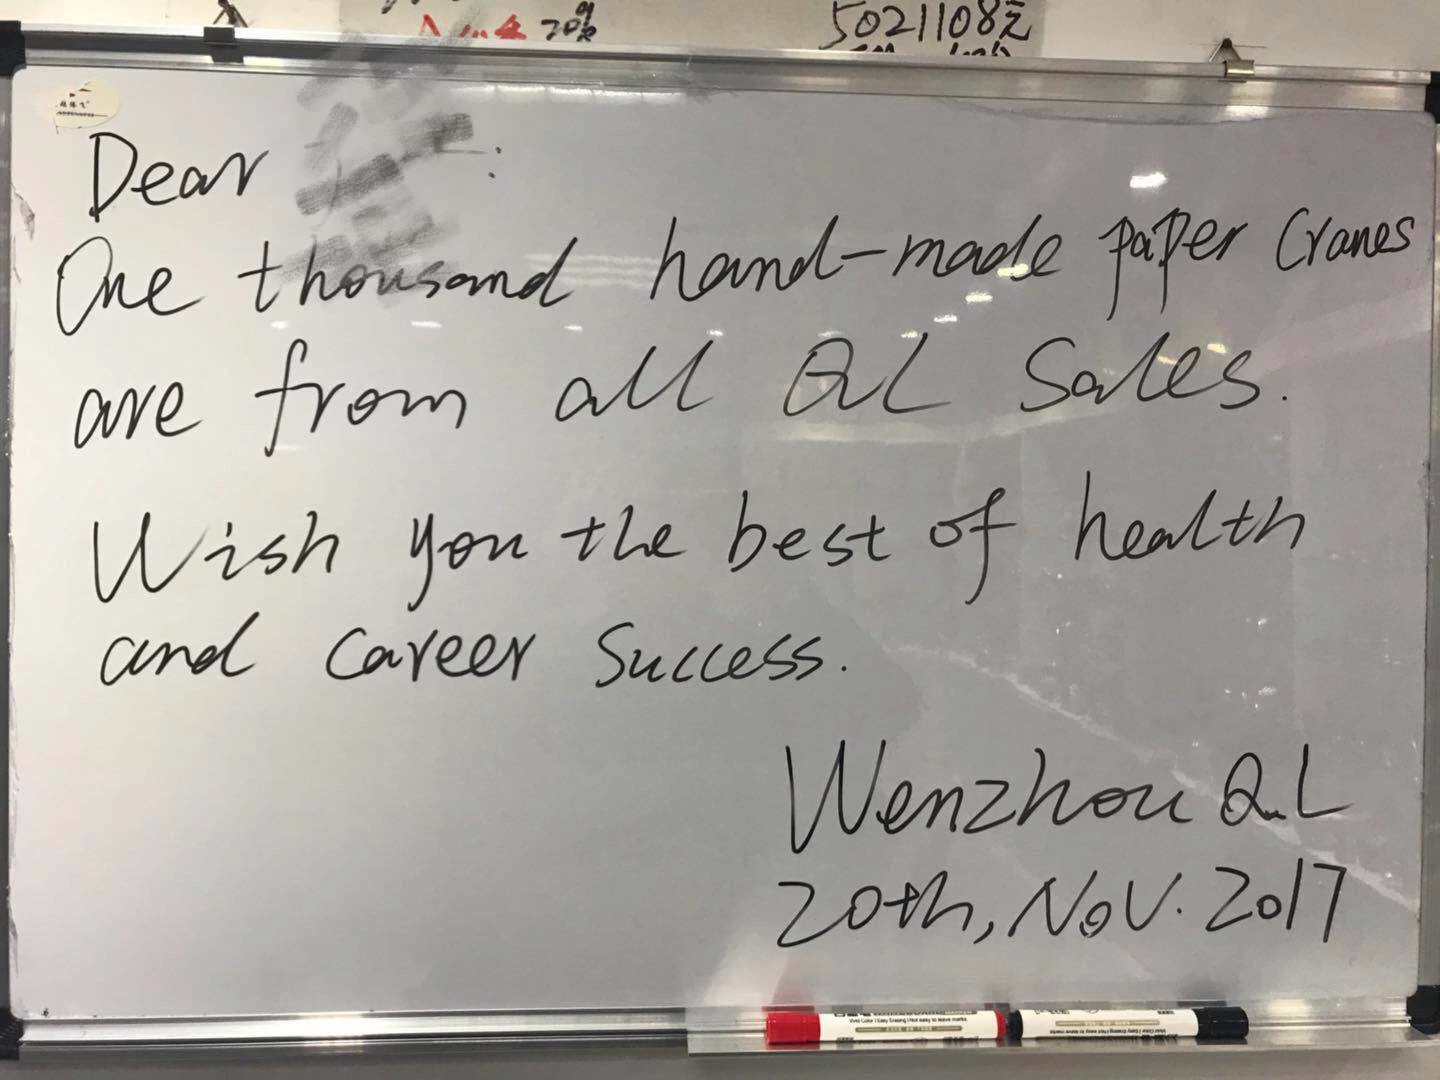 5021108元
Dear :
One thousand hand-made paper Cranes
are from all QL Sales.
Wish you the best of health
and Career Success.
Wenzhou QL
20th, Nov. 2017